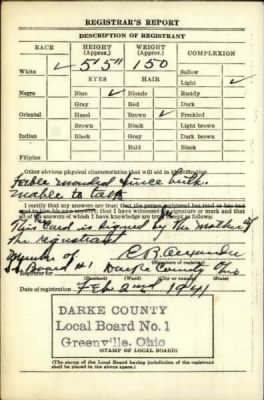 REGISTRAR'S REPORT
DESCRIPTION OF REGISTRANT
RACE HEIGHT (Approx.) WEIGHT (Approx.) COMPLEXION
White ✓ 5'5" 150 Sallow
Light ✓
EYES HAIR
Negro Blue ✓ Blonde Ruddy
Gray Red Dark
Oriental Hazel Brown ✓ Freckled
Brown Black Light brown
Indian Black Gray Dark brown
Bald Black
Filipino
Other obvious physical characteristics that will aid in identification
Feeble minded since birth.
unable to talk
I certify that my answers are true; that the person registered has read or has had
read to him his own answers; that I have witnessed his signature or mark and that
all of his answers of which I have knowledge are true, except as follows:
This Card is signed by the mother of
the registrant
member of
Board #1 Darke County Ohio
(Signature of registrar)
Registrar for
(Precinct) (Ward) (City or county) (State)
Date of registration Feb 2nd 1941
DARKE COUNTY
Local Board No. 1
Greenville, Ohio
(STAMP OF LOCAL BOARD)
(The stamp of the Local Board having jurisdiction of the registrant
shall be placed in the above space.)